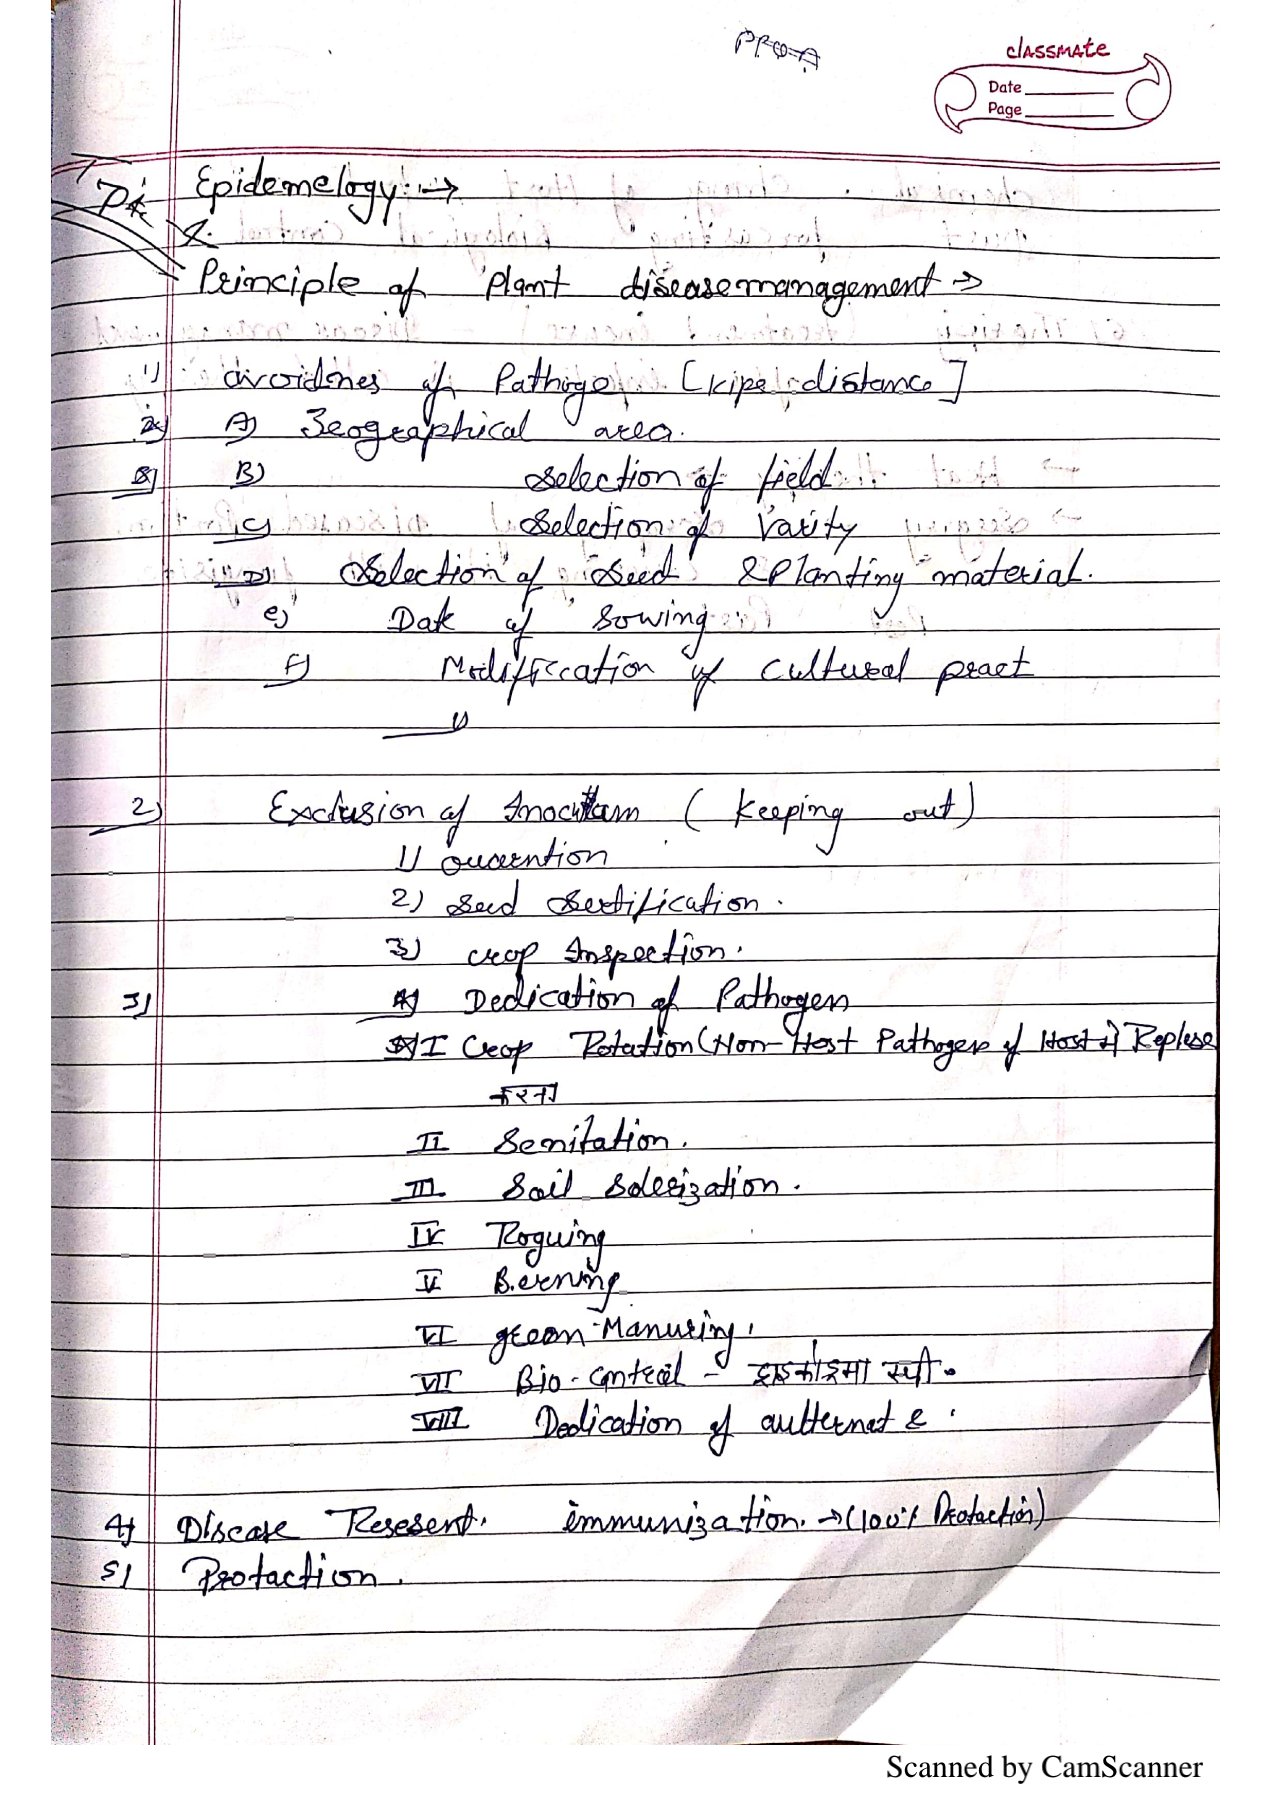 classmate
Date
Page
Epidemelogy :→
Principle of Plant disease management →
1) avoidnes of Pathoge [kipe distance]
A) Geographical area.
B) Selection of field
C) Selection of Varity
D) Selection of Seed & Planting material.
e) Date of Sowing
F) Modification of cultural pract
2) Exclusion of Inoculam ( keeping out )
1) quarention
2) Seed Sertification.
3) crop Inspection.
3) Dedication of Pathogen
I Crop Rotation (Non-Host Pathogen of Host से) Replese
करना
II Senitation.
III Soil Solerization.
IV Roguing
V Berning
VI green-Manuring.
VII Bio-control -
VIII Dedication of aulternet &
4) Disease Resesent. immunization. → (100% Protaction)
5) Protaction.
Scanned by CamScanner